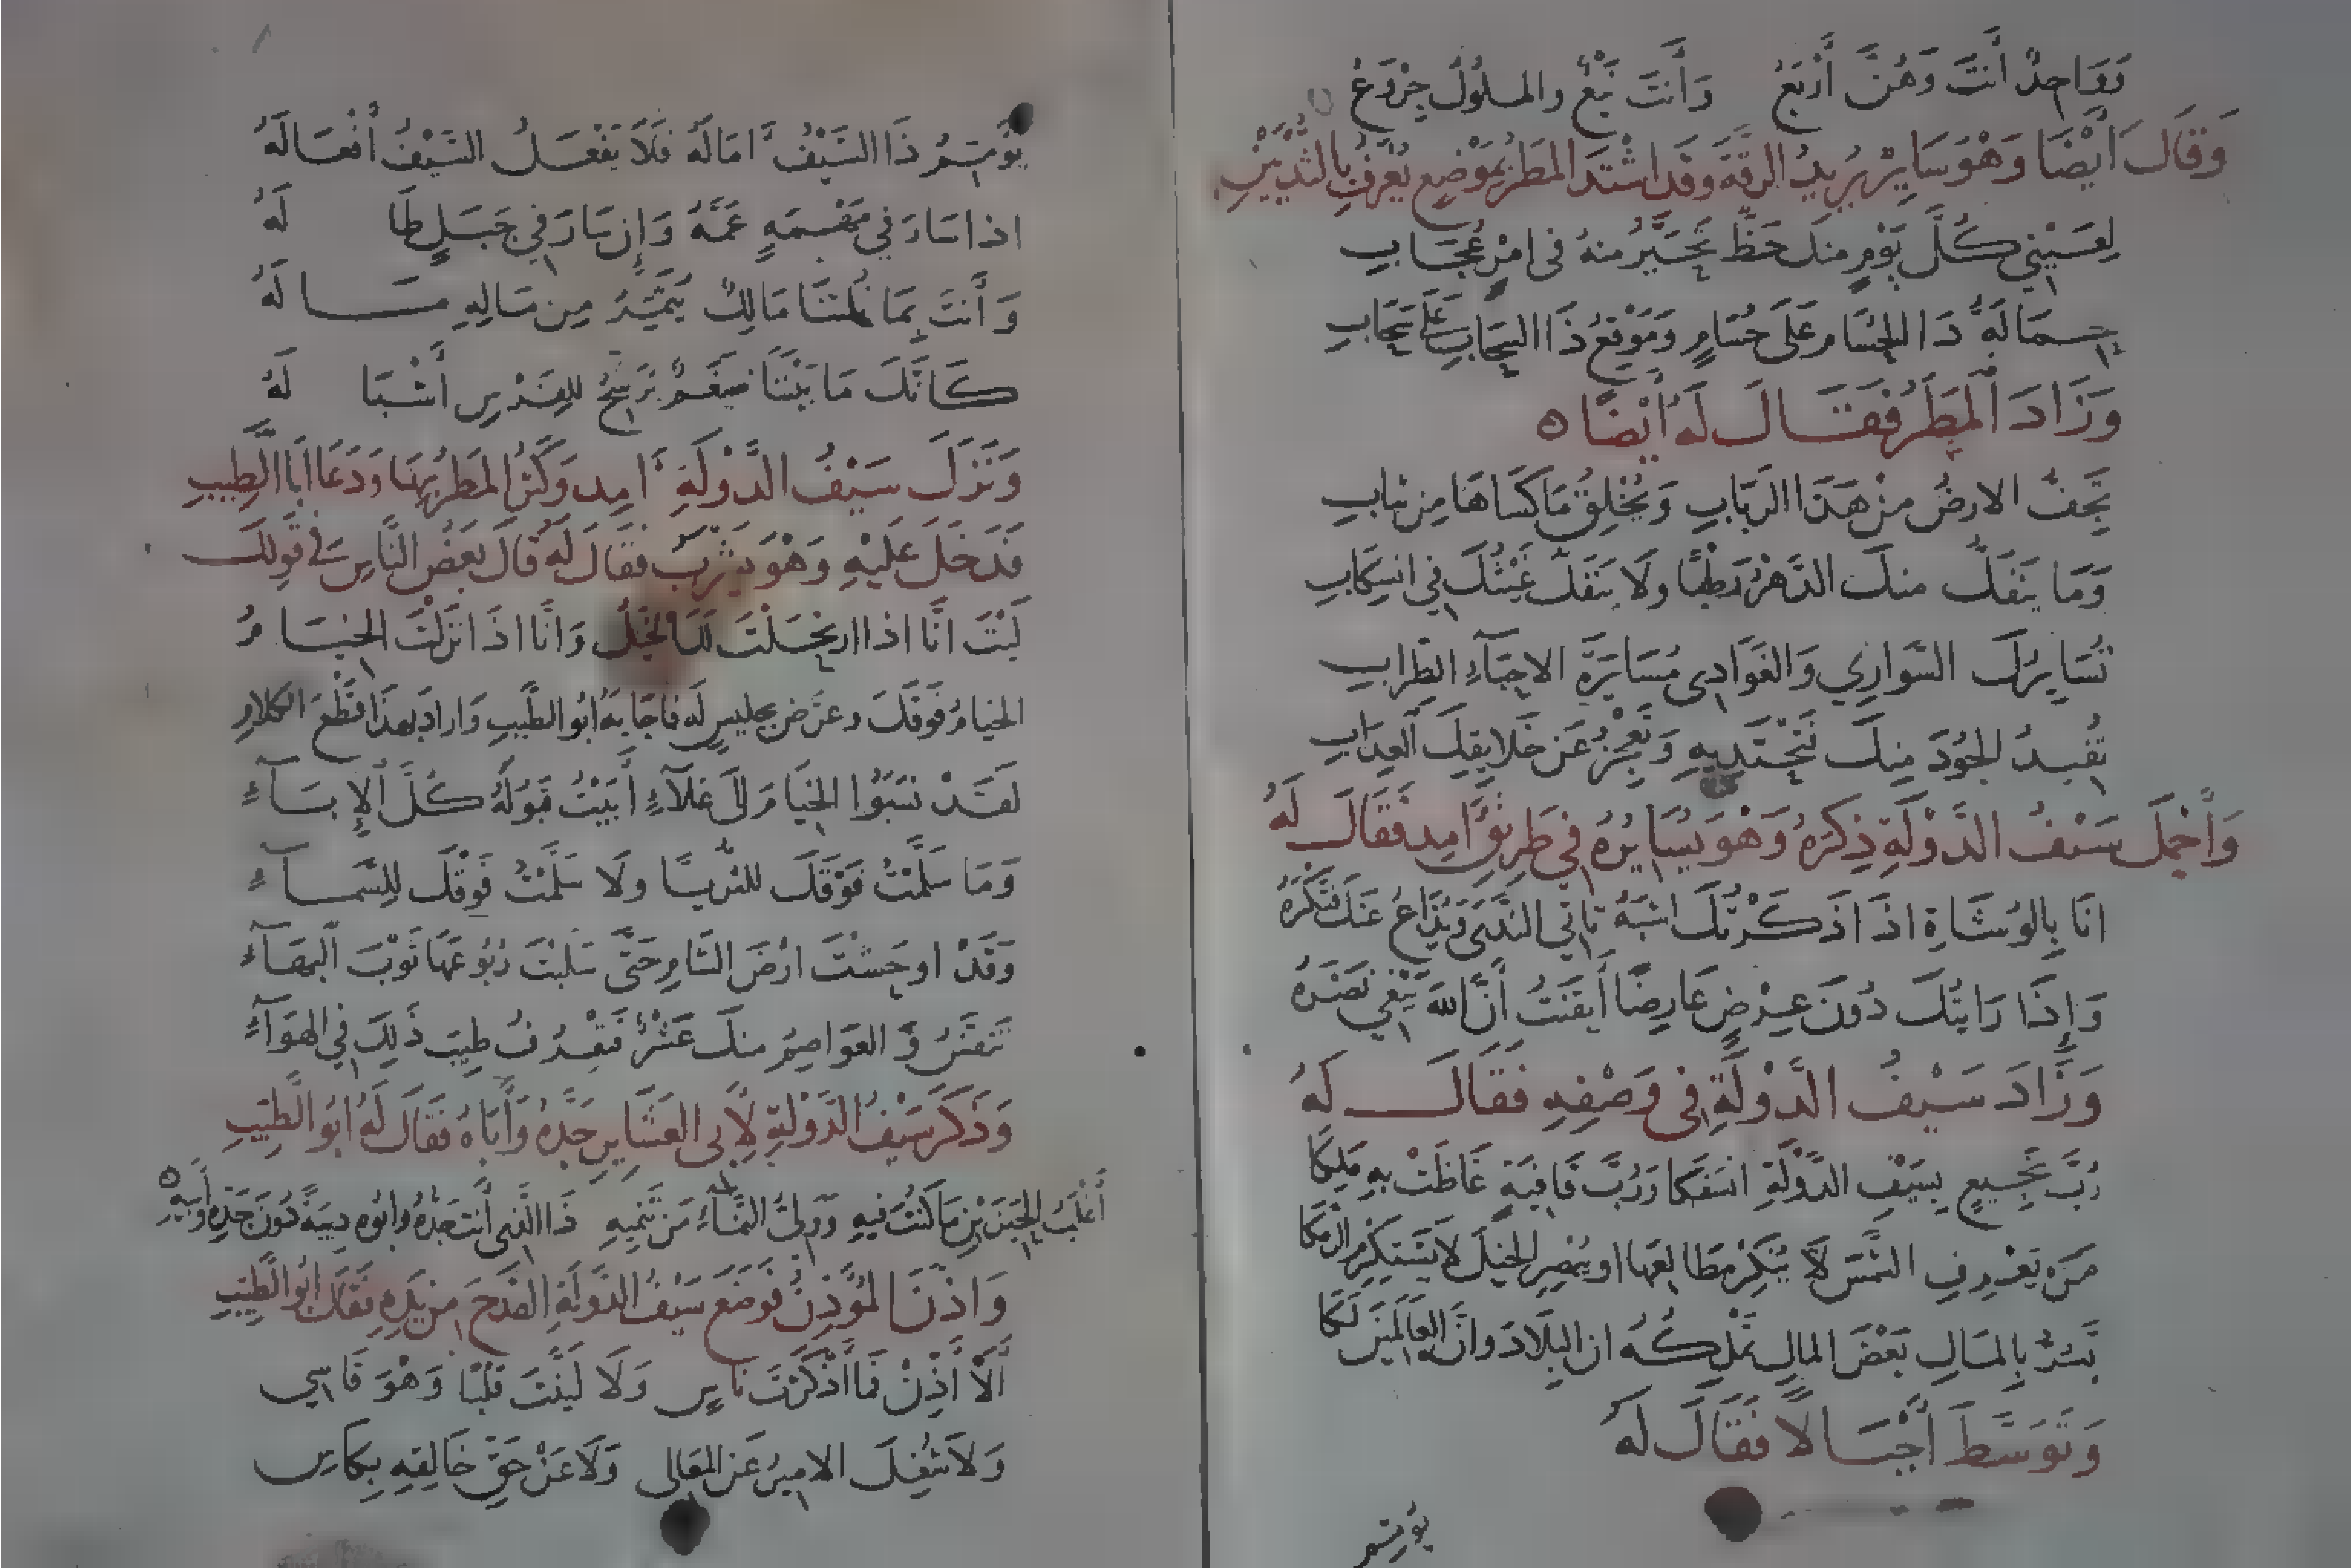 وَوَاحِدٌ أَنتَ وَهُنَّ أَرْبَعُ وَأَنتَ نَبْعٌ والملوُكُ خِرْوَعُ
وَقَالَ أَيْضًا وَهْوَ سَايِرٌ يُرِيدُ الرقَّةَ وَقَد اشْتَدَ المَطَرُ بِمَوْضِعٍ يُعْرَفُ بِالثَّدْيَيْنِ
لِعَيْنِي كُلَّ يَوْمٍ منكَ حَظٌّ تَحَيَّرُ منهُ فى امْرٍ عُجَابِ
حِمَالَةُ ذَا الحُسَامِ عَلَى حُسَامٍ وَمَوْقِعُ ذَا السَحَابِ عَلَى سَحَابِ
وَزَادَ المَطَرُ فَقَالَ لَهُ أَيْضًا
تَجِفُّ الارضُ مِنْ هَذَا الرَبَابِ وَيُخْلِقُ مَا كَسَاهَا مِن ثيابِ
وَمَا يَنفَكُّ منكَ الدَّهْرُ رَطْبًا ولَا يَنفَكُّ غَيْثُكَ فِي انسِكَابِ
تُسَايِرُكَ السَّوَارِي وَالغَوَادِى مُسَايَرَةَ الاحِبَّآءِ الطِّرَابِ
تُفيدُ الجُودَ مِنكَ فَتَحْتَذِيهِ وَتَعْجِزُ عَن خَلايِقِكَ العِذَابِ
وَأَجْمَلَ سَيْفُ الدَّوْلَةِ ذِكرَهُ وَهْوَ يُسَايِرُهُ فِي طَرِيقِ آمِد فَقَالَ لَهُ
انَا بِالوُشَاةِ اذَا ذَكَرْتُكَ اشبَهُ تاتي النَّدَى وَيُذَاعُ عَنكَ فَتَكْرَهُ
وَإِذَا رَايتُكَ دُونَ عِرْضٍ عَارِضًا أَيقَنتُ أَنَّ اللهَ يَبْغِي نَصْرَهُ
وَزَادَ سَيْفُ الدَّوْلَةِ فِى وَصْفِهِ فَقَالَ لَهُ
رُبَّ نَجِيعٍ بِسَيْفِ الدَّوْلَةِ انسَفَكَا وَرُبَّ قَافِيَةٍ غَاظَتْ بِهِ مَلِكَا
مَن يَعْرِفِ الشَّمسَ لَا يُنكِرْ مَطَالِعَهَا او يُبْصِرِ الخَيْلَ لَا يَستَكرِمِ الرَّمَكَا
تَسُرُّ بِالمَالِ بَعْضَ المالِ تَملِكُهُ ان البِلَادَ وانَّ العَالَمِينَ لَكَا
وَتَوَسَّطَ أَجْبَالًا فَقَالَ لَهُ
يُومِّمُ
يُومِّمُ ذَا السَّيْفُ آمَالَهُ فَلَا يَفْعَلُ السَّيْفُ أَفْعَالَهُ
اذا سَارَ فِي مَهْمَهٍ عَمَّهُ وَإِن سَارَ فِي جَبَلٍ طَالَهُ
وَأَنتَ بِمَا نُلتَنَا مَالِكٌ يُثَمِّرُ مِن مَالِهِ مَالَهُ
كَانَّكَ مَا بَيْنَنَا ضَيْغَمٌ يُرَشِّحُ لِلفَرْسِ أَشْبَالَهُ
وَنَزَلَ سَيْفُ الدَّوْلَةِ آمِد وَكَثُرَ المَطَرُ بِهَا وَدَعَا أَبَا الطِّيبِ
فَدَخَلَ عَلَيْهِ وَهْوَ يَشْرَبُ فَقَالَ لَهُ قَالَ بَعْضُ النَّاسِ فِي قَولِكَ
لَيْتَ انَّا اذا ارتَحَلْتَ لَكَ الخَيْلُ وَانَّا اذَا نَزَلْتَ الخِيَامُ
الخيامُ فَوقَكَ وعَرَّضَ بِجليسٍ لَه فاجَابَهُ ابُو الطَّيِبِ وَارادَ بهذَا قَطْعَ الكلامِ
لَقَدْ نَسَبُوا الخِيَامَ إلَى عَلآءٍ أَبَيْتُ قَبُولَهُ كُلَّ الإِبَآءِ
وَمَا سَلَّمْتُ فَوْقَكَ للثُرَيَّا ولَا سَلَّمْتُ فَوقَكَ لِلسَّمآءِ
وَقَدْ اوحَشْتَ ارْضَ الشَامِ حَتَّى سَلَبْتَ رُبُوعَهَا ثَوْبَ البَهَآءِ
تَنَفَّسُ وَ العَوَاصِمُ منكَ عَشْرٌ فَيُعْرَفُ طِيبُ ذَلِكَ فِي الهَوَآءِ
وَذَكَرَ سَيْفُ الدَّوْلَةِ لِأَبِى العَشَايِرِ جَدَّهُ وَأَبَاهُ فَقَالَ لَهُ ابُو الطَّيِّبِ
أَغْلَبُ الحَيِّزَيْنِ مَا كُنتَ فيهِ وَوَلِيُّ النَّمَاءِ مَن تَنمِيهِ ذَا الَّذِى أَنتَ جَدُّهُ وابُوه دِنيَةً دُونَ جَدِّهِ وَأَبِيهِ
وَاذَّنَ المُؤَذِّنُ فَوضَعَ سَيْفُ الدَّولَةِ القَدَحَ مِن يَدِهِ فَقَالَ ابُو الطَّيِّبِ
أَلَا أَذِّنْ فَمَا أَذْكَرْتَ نَاسِ وَلَا لَيَّنْتَ قَلبًا وَهْوَ قَاسِي
وَلَا شُغِلَ الامِيرُ عَنِ المَعَالِى وَلَا عَنْ حَقِّ خَالِقِهِ بِكَاسِ